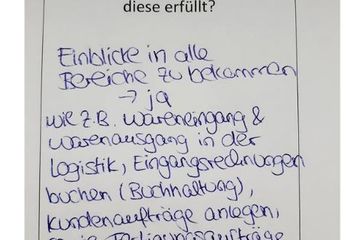 diese erfüllt?
Einblicke in alle
Bereiche zu bekommen
→ ja
wie z.B. Wareneingang &
Warenausgang in der
Logistik, Eingangsrechnungen
buchen (Buchhaltung),
Kundenaufträge anlegen,
sowie Fertigungsaufträge